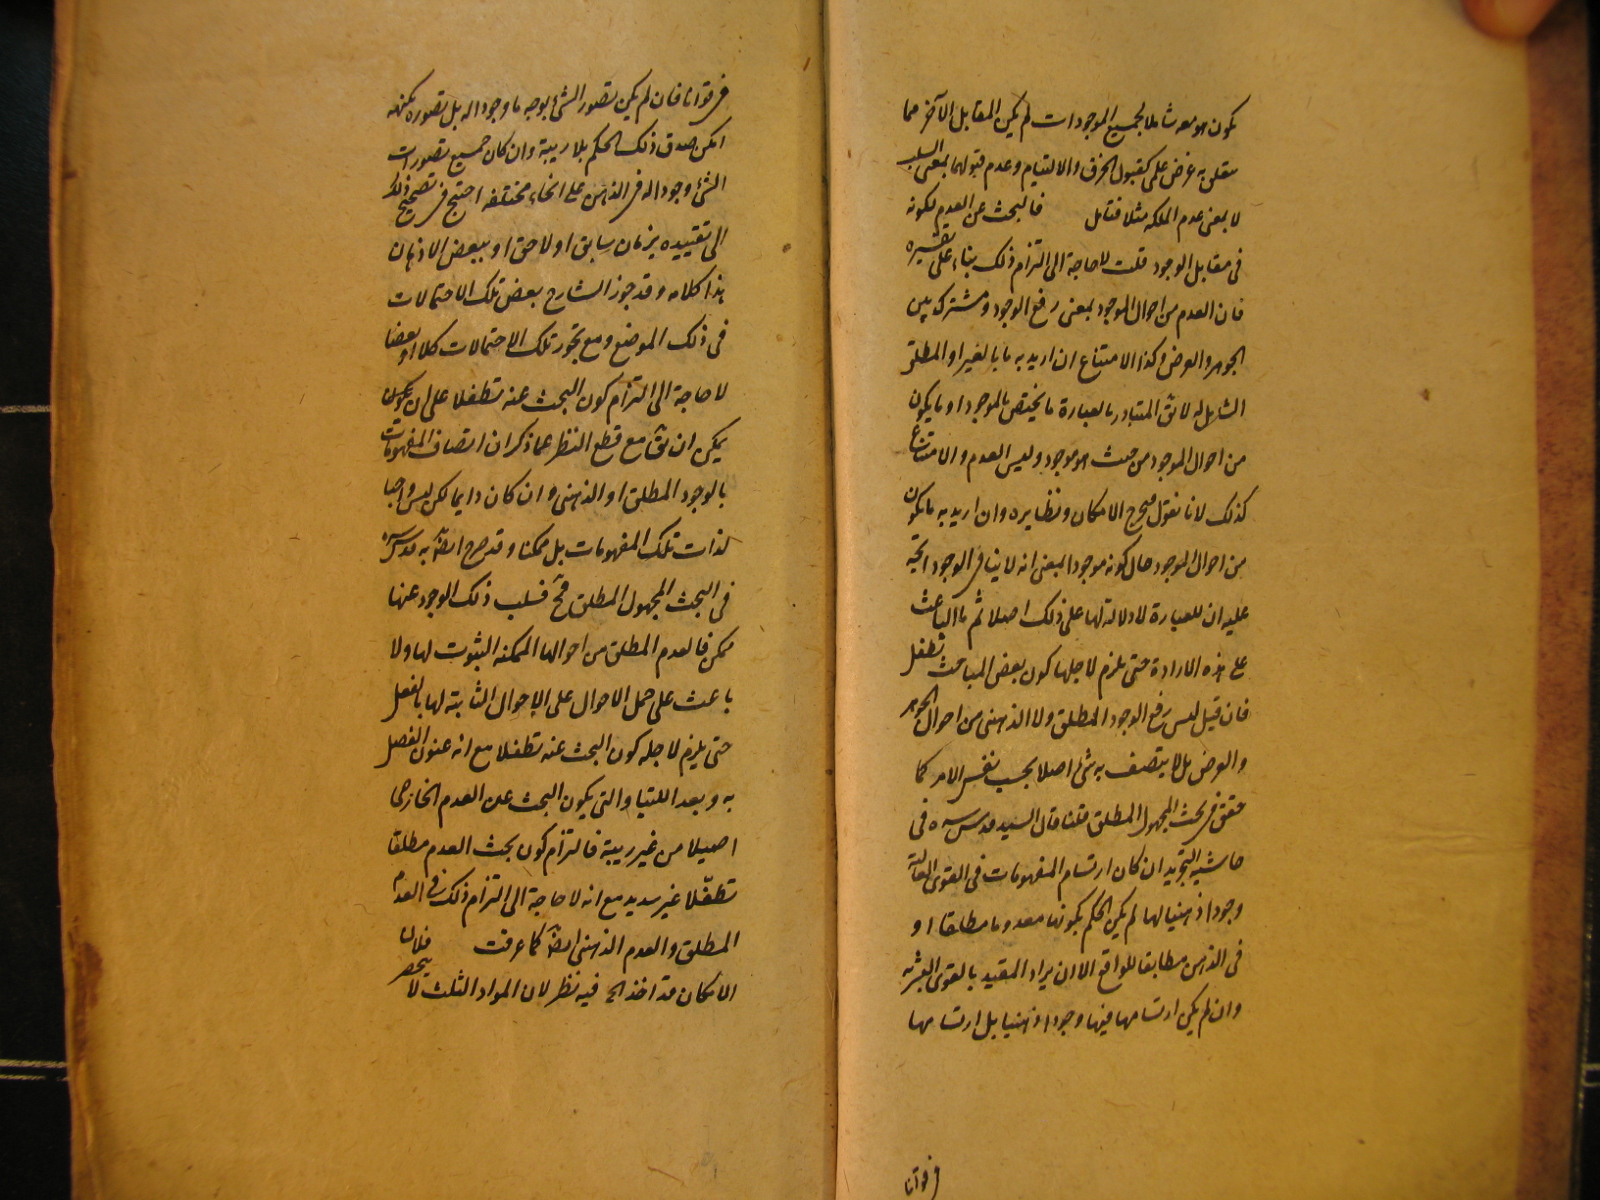 يكون هو معه شاملا لجميع الموجودات لم يكن المقابل الآخر مما
يتعلق به غرض علمى كقبول الخرق والالتيام وعدم قبولهما بمعنى السلب
لا بمعنى عدم الملكه مثلا فتامل فالبحث عن العدم لكونه
فى مقابل الوجود قلت لا حاجة الى التزام ذلك بناء على تفسيره
فان العدم من احوال الموجود بمعنى رفع الوجود ومشترك بين
الجوهر والعرض وكذا الامتناع ان اريد به ما بالغير او المطلق
الشامل له لا يق المتبادر بالعبارة ما يختص بالموجود او ما يكون
من احوال الموجود من حيث هو موجود وليس العدم والامتناع
كذلك لانا نقول فيخرج الامكان ونظايره وان اريد به ما يكون
من احوال الموجود حال كونه موجودا بمعنى انه لا ينافى الوجود اتجه
عليه ان للعبارة لا دلالة لها على ذلك اصلا ثم ما الباعث
على هذه الارادة حتى يلزم لاجلها كون بعض المباحث تطفل
فان قيل ليس رفع الوجود المطلق ولا الذهنى من احوال الجوهر
والعرض بل لا يتصف به شئ اصلا بحسب نفس الامر كما
حقق فى بحث المجهول المطلق قلنا قال السيد قدس سره فى
حاشية التجريد ان كان ارتسام المفهومات فى القوى العالية
وجودا ذهنيا لها لم يكن الحكم بكونها معدوما مطلقا او
فى الذهن مطابقا للواقع الا ان يراد المقيد بالقوى البشرية
وان لم يكن ارتسامها فيها وجودا ذهنيا بل ارتسامها
فى قوانا
فى قوانا فان لم يكن تصور الشئ بوجه ما وجودا له بل تصوره بكنهه
امكن صدق ذلك الحكم بلا ريبة وان كان جميع تصورات
الشئ وجودا له فى الذهن على انحاء مختلفه احتيج فى تصحيح ذلك
الى تقييده بزمان سابق او لاحق او ببعض الاذهان
هذا كلامه وقد جوز الشارح بعض تلك الاحتمالات
فى ذلك الموضع ومع تجوز تلك الاحتمالات كلا او بعضا
لا حاجة الى التزام كون البحث عنه تطفلا على ان
يمكن ان يق مع قطع النظر عما ذكر ان اتصاف المفهومات
بالوجود المطلق او الذهنى وان كان دايما لكن ليس واجبا
لذات تلك المفهومات بل ممكنا وقد صرح ايضا به قدس سره
فى البحث المجهول المطلق فح فسلب ذلك الوجود عنها
ممكن فالعدم المطلق من احوالها الممكنه الثبوت لها ولا
باعث على حمل الاحوال على الاحوال الثابتة لها بالفعل
حتى يلزم لاجله كون البحث عنه تطفلا مع انه عنون الفصل
به وبعد اللتيا والتى يكون البحث عن العدم الخارجى
اصيلا من غير ريبة فالتزام كون بحث العدم مطلقا
تطفلا غير سديد مع انه لا حاجة الى التزام ذلك فى العدم
المطلق والعدم الذهنى ايضا كما عرفت فلان
الامكان قد اخذ الخ فيه نظر لان المواد الثلث لا ينحصر